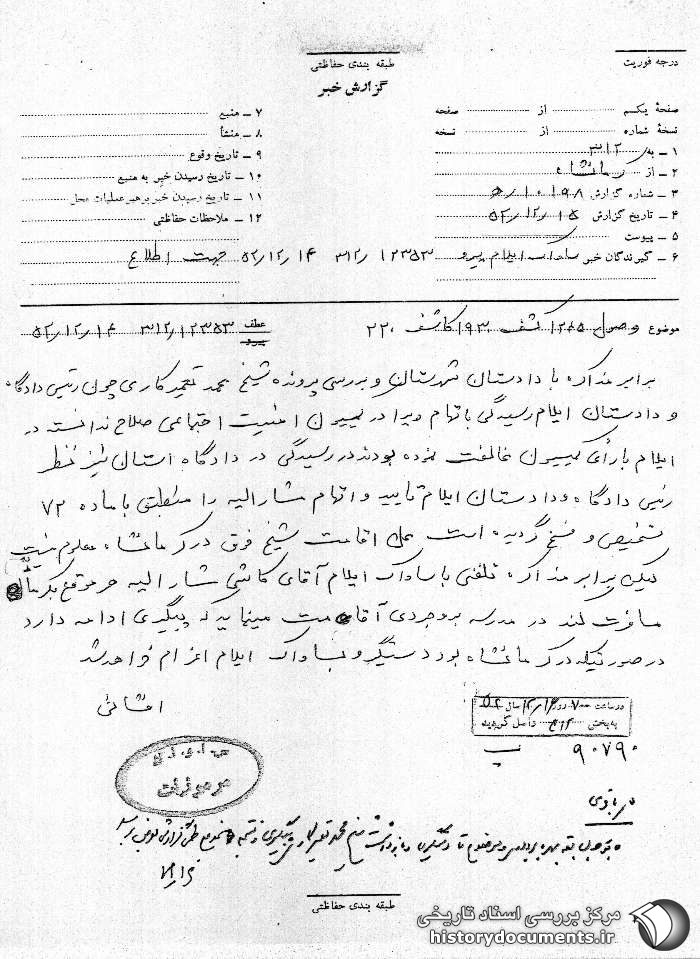 درجه فوریت
طبقه بندی حفاظتی
گزارش خبر
صفحهٔ یکم از صفحه
نسخهٔ شماره از نسخه
۱ ـ به ۳۱۲
۲ ـ از کرمانشاه
۳ ـ شماره گزارش ۵/۱۰۱۹۸
۴ ـ تاریخ گزارش ۵۲/۱۲/۱۵
۵ ـ پیوست
۶ ـ گیرندگان خبر ساواک ایلام پیرو ۱۲۳۵۳/۳۱۲ ۵۲/۱۲/۱۴ جهت اطلاع
۷ ـ منبع
۸ ـ منشأ
۹ ـ تاریخ وقوع
۱۰ ـ تاریخ رسیدن خبر به منبع
۱۱ ـ تاریخ رسیدن خبر برهبر عملیات محل
۱۲ ـ ملاحظات حفاظتی
موضوع وصول ۱۲۸۵ کشف ۹۳ کاشف ۲۲۰ عطف پیرو ۱۲۳۵۳/۳۱۲ ۵۲/۱۲/۱۴
برابر مذاکره با دادستان شهرستان و بررسی پرونده شیخ محمد تعمیرکاری چون رئیس دادگاه
و دادستان ایلام رسیدگی باتهام ویرا در کمیسیون امنیت اجتماعی صلاح ندانسته در
ایلام با رأی کمیسیون مخالفت نموده بودند در رسیدگی در دادگاه استان نیز نظر
رئیس دادگاه و دادستان ایلام تایید و اتهام مشارالیه را منطبق با ماده ۷۲
تشخیص و فسخ گردیده است محل اقامت شیخ فوق در کرمانشاه معلوم نیست
لیکن برابر مذاکره تلفنی با ساواک ایلام آقای کاشی مشارالیه هر موقع بکرمانشاه
مسافرت کند در مدرسه بروجردی اقامت مینماید پیگیری ادامه دارد
در صورتیکه در کرمانشاه بود دستگیر و بساواک ایلام اعزام خواهد شد
افشائی
در ساعت ۷۰۰ روز ۱۲/۱۶ سال ۵۲
به بخش ۳۱۲ داصل گردید
۹۰۷۹۰
طبقه بندی حفاظتی
مرکز بررسی اسناد تاریخی
historydocuments.ir